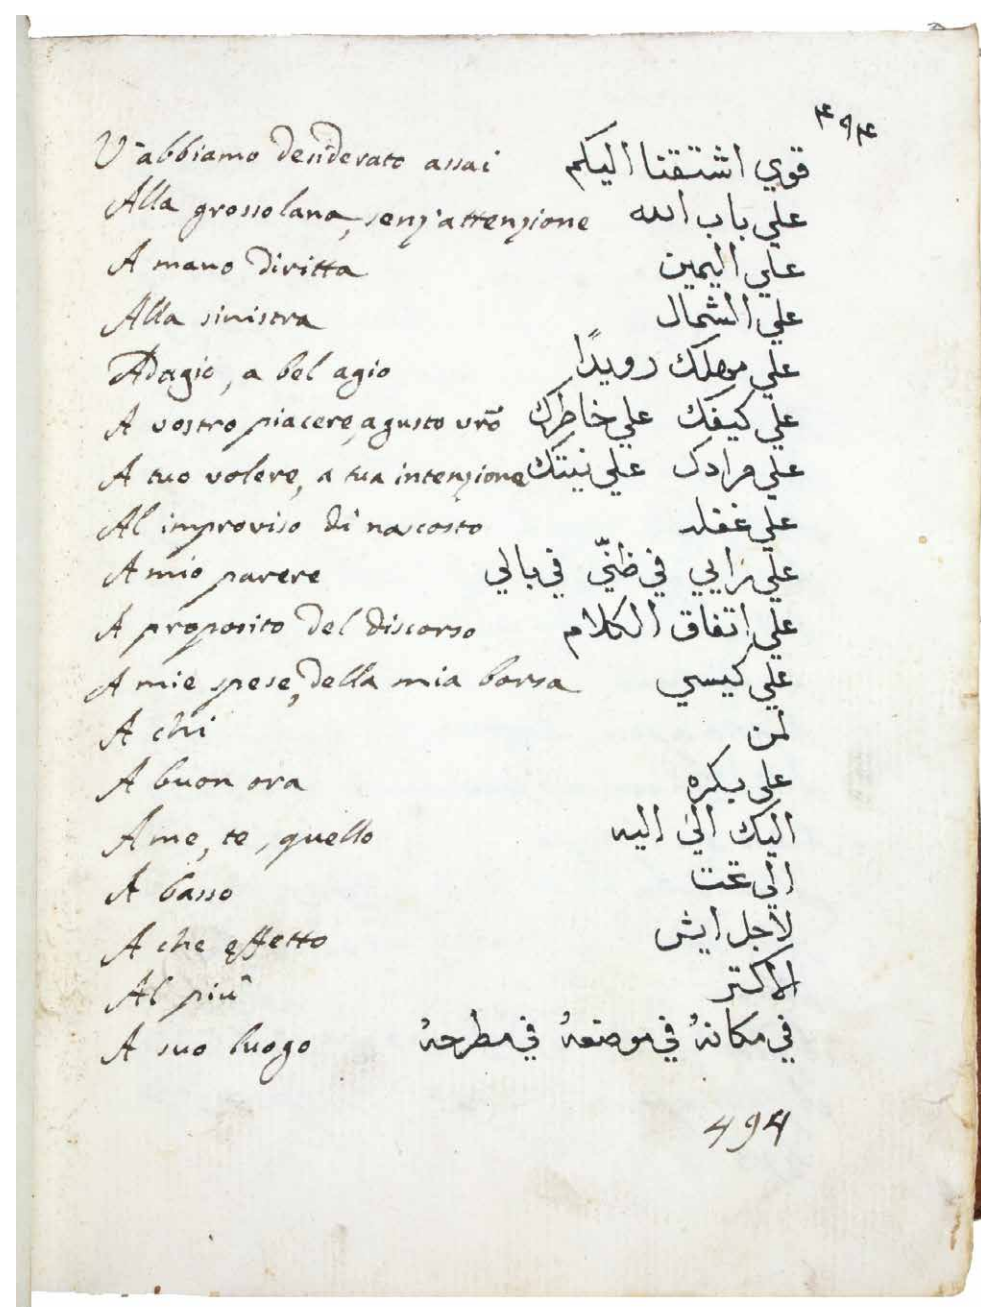 ٤٩٤
V'abbiamo desiderato assai قوي اشتقنا اليكم
Alla grossolana, senz'attenzione علي باب الله
A mano diritta علي اليمين
Alla sinistra علي الشمال
Adagio, a bel agio علي مهلك رويدًا
A vostro piacere, a gusto vrō علي كيفك علي خاطرك
A tuo volere, a tua intenzione علي مرادك علي نيتك
Al improviso di nascosto علي غفله
A mio parere علي رايي في ظنّي في بالي
A proposito del discorso علي اتفاق الكلام
A mie spese, della mia borsa علي كيسي
A chi لمن
A buon ora علي بكره
A me, te, quello اليك الي اليه
A basso الي تحت
A che effetto لاجل ايش
Al più الاكتر
A suo luogo في مكانهُ في موضعهُ في مطرحهُ
494